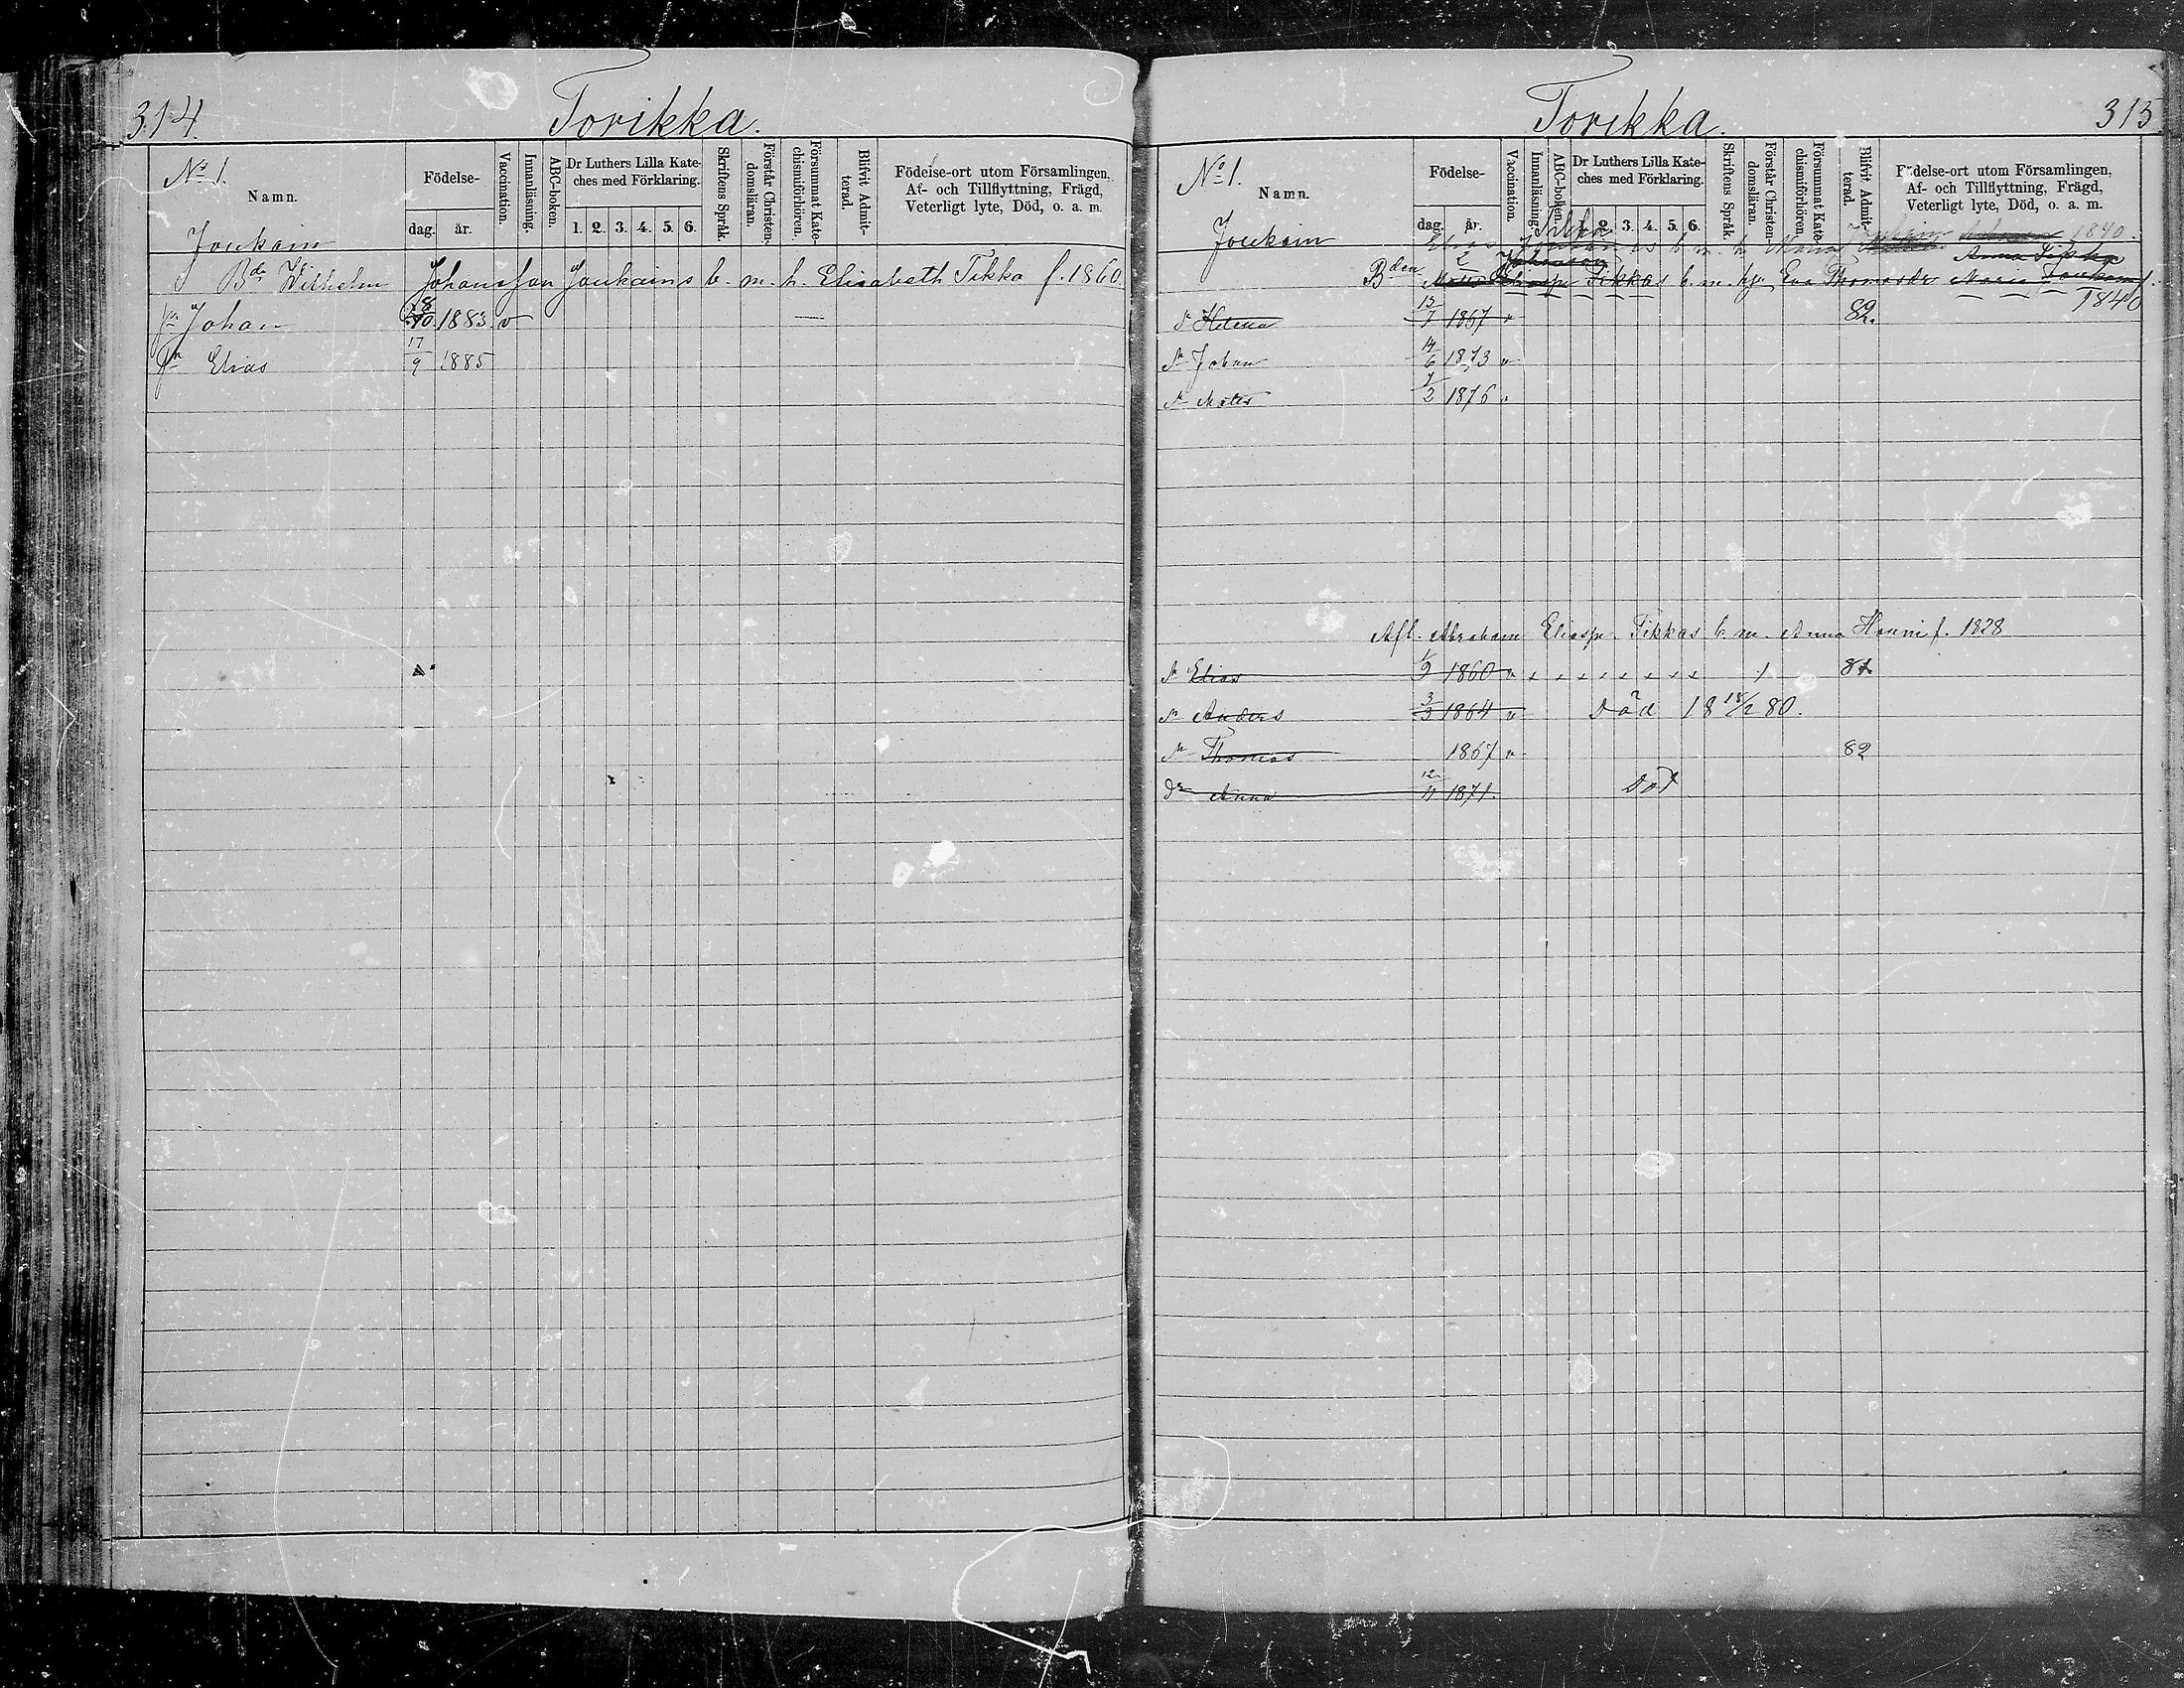 314.
Torikka.
No 1.
Namn.
Födelse-
dag. år.
Vaccination.
Innanläsning.
ABC-boken.
Dr Luthers Lilla Kate-
ches med Förklaring.
1. 2. 3. 4. 5. 6.
Skriftens Språk.
Förstår Christen-
domsläran.
Försummat Kate-
chismiförhören.
Blifvit Admit-
terad.
Födelse-ort utom Församlingen,
Af- och Tillflyttning, Frägd,
Veterligt lyte, Död, o. a. m.
Joukain
Bdn Wilhelm Johansson Joukains b. m. h. Elisabeth Tikka f. 1860.
sn Johan 18/10 1883 v —
sn Elias 17/9 1885
Torikka.
315
No 1.
Namn.
Födelse-
dag. år.
Vaccination.
Innanläsning.
ABC-boken.
Dr Luthers Lilla Kate-
ches med Förklaring.
2. 3. 4. 5. 6.
Skriftens Språk.
Förstår Christen-
domsläran.
Försummat Kate-
chismiförhören.
Blifvit Admit-
terad.
Födelse-ort utom Församlingen,
Af- och Tillflyttning, Frägd,
Veterligt lyte, Död, o. a. m.
Joukain
Tikka
Elias b. m. h. Maria 1840.
Johansson Anna
Bden Tikkas b. m. hu Eva Thomasdr Maria Joukain f.
1840
d Helena 15/7 1867 v 82.
sn Johan 14/6 1873 v
sn Mats 7/2 1876 v
Afl. Abraham Eliass. Tikkas b. m. Anna Hanni f. 1828
sn Elias 1/9 1860 v x x x x x x x x / 81
sn Anders 3/3 1864 v Död 18 18/2 80.
sn Thomas 1867 v 82
dr Anna 12/11 1871. Död